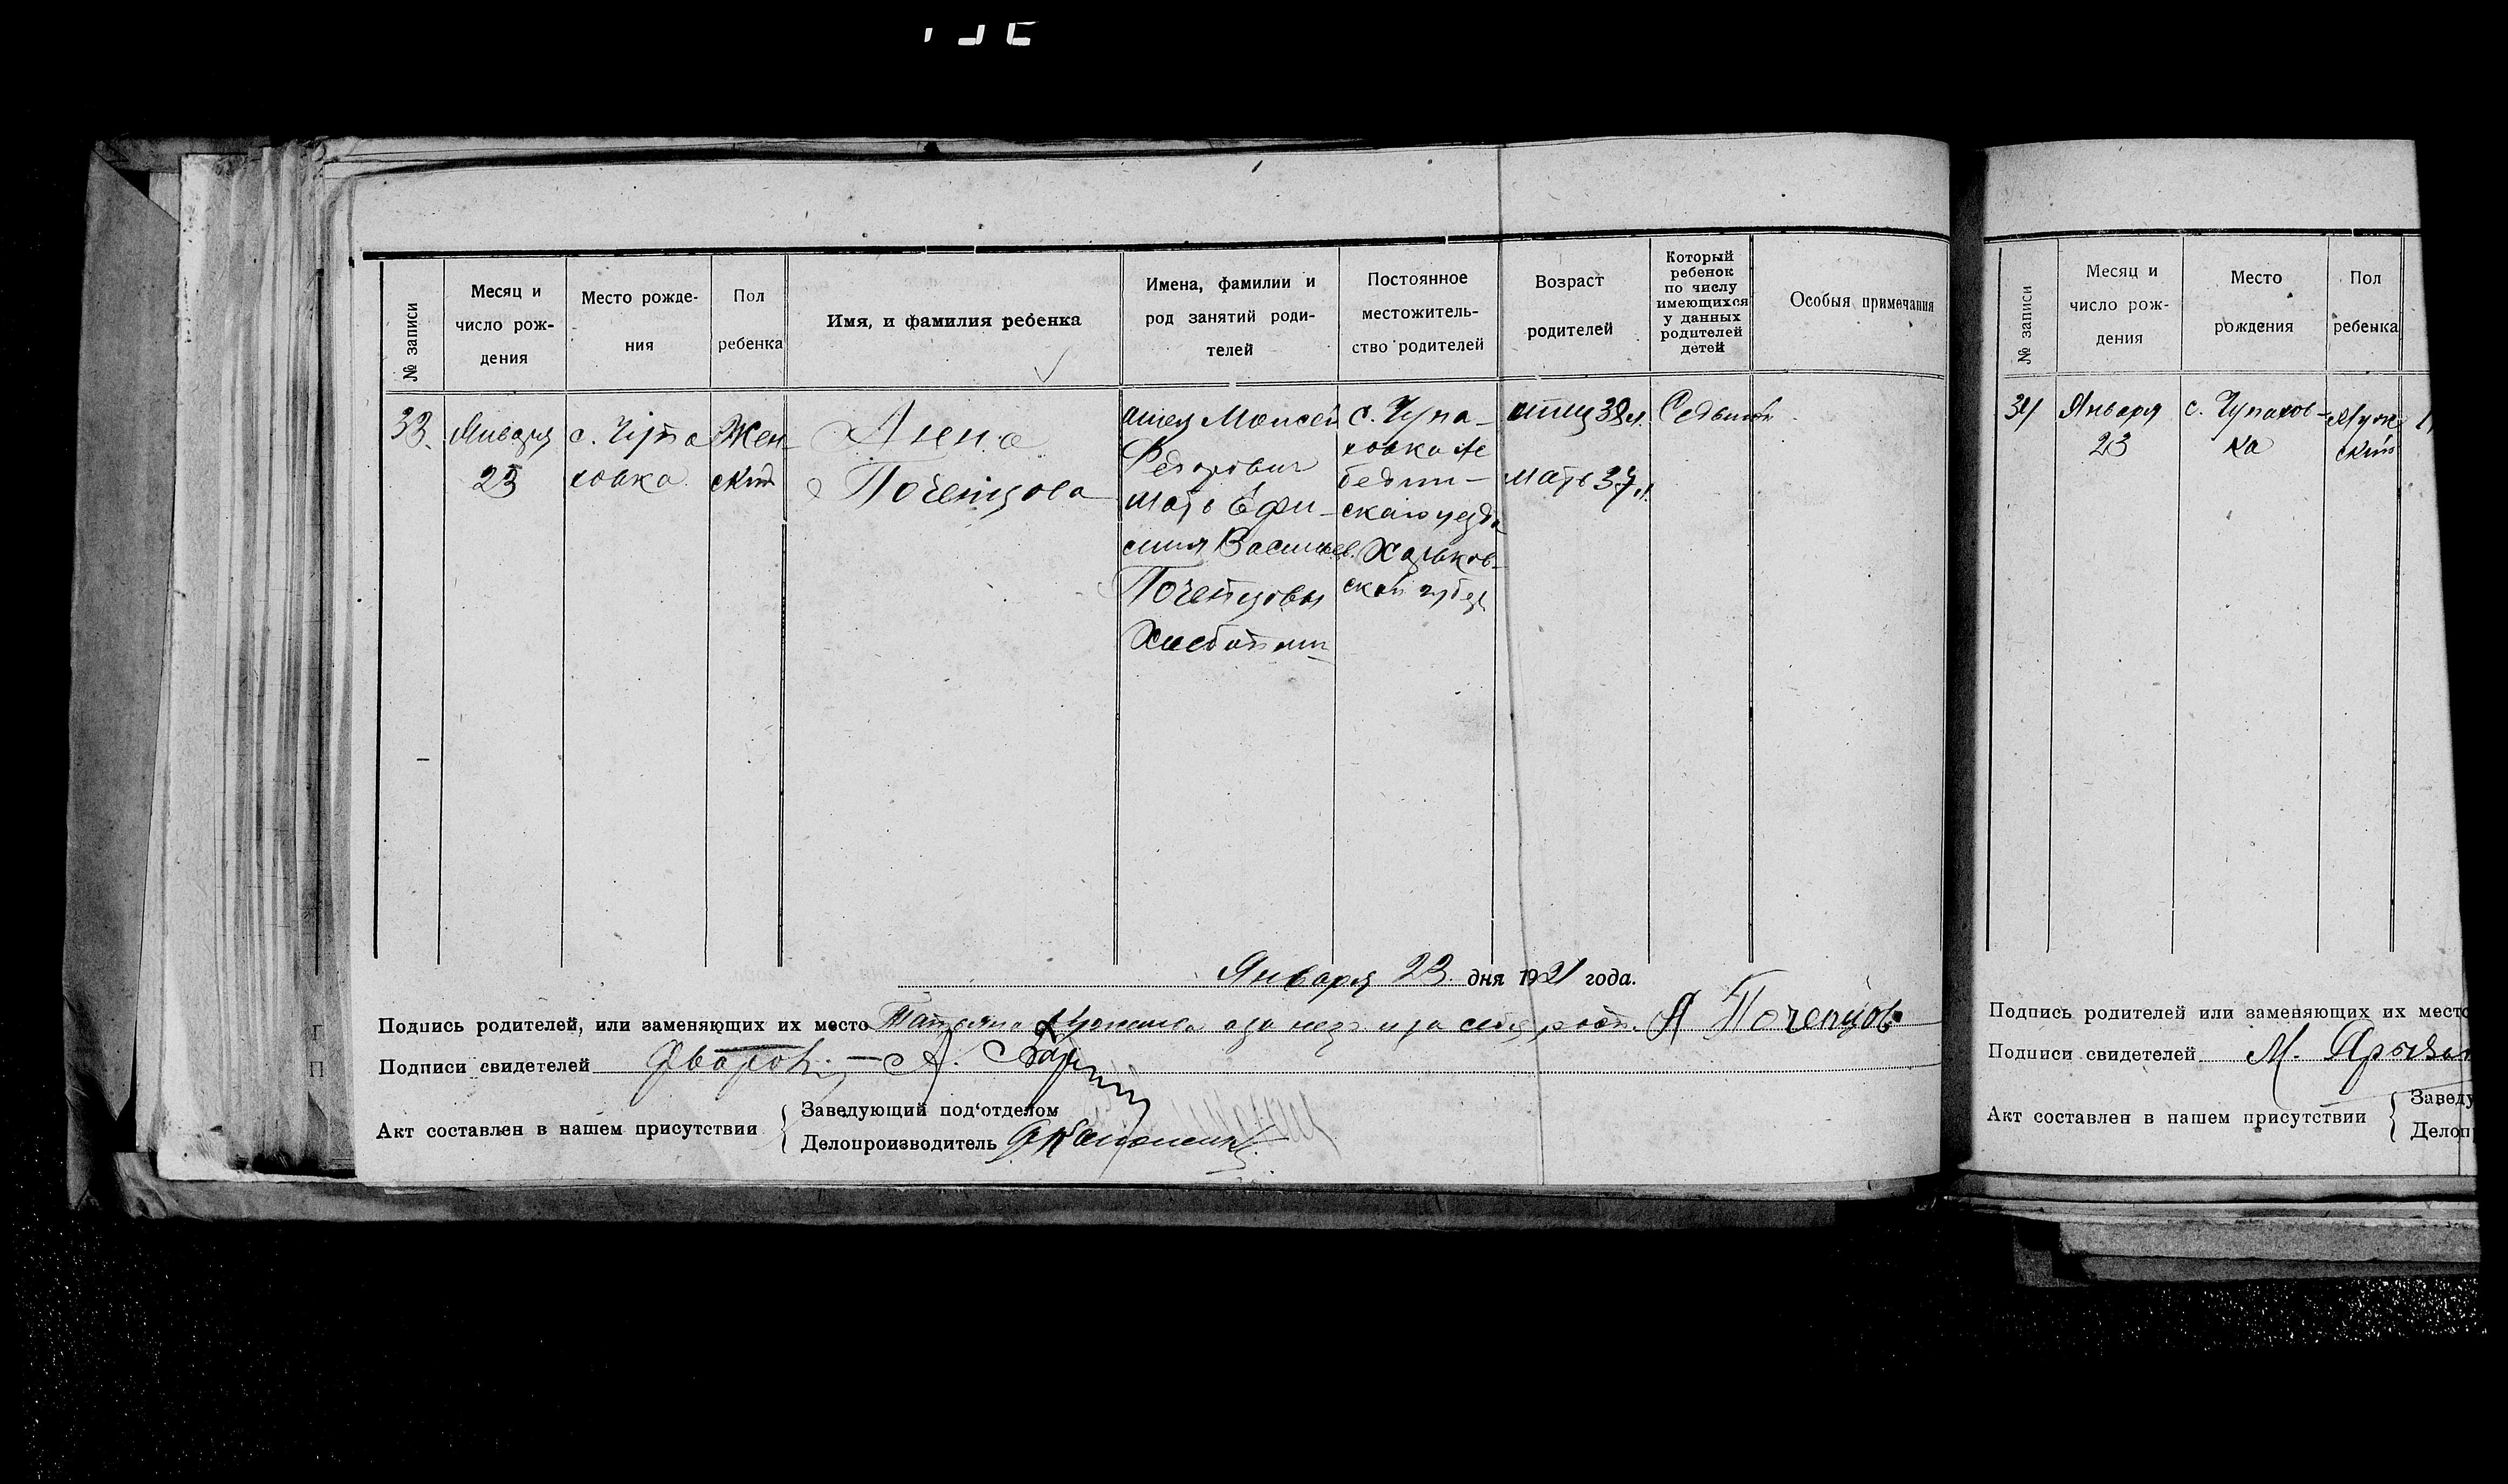 № записи
Месяц и число рож-
дения
Место рожде-
ния
Пол
ребенка
Имя, и фамилия ребенка
Имена, фамилии и
род занятий роди-
телей
Постоянное
местожитель-
ство родителей
Возраст
родителей
Который
ребенок
по числу
имеющихся
у данных
родителей
детей
Особыя примечания
33.
Января
23
с. Чупа
ховка
Жен
ский
Анна
Почепцова
отец Моисей
Федорович
мать Ефи-
синия Васильев.
Почепцовы
Хлебопаш
с. Чупа-
ховка Ле
бедин-
скаго уезда
Харьков-
ской губер
отцу 38 л.
мать 37 л.
Седьмой
Января 23 дня 1921 года.
Подпись родителей, или заменяющих их место Татьяна за нея и за себя росп. А Почепцов
Подписи свидетелей А.
Акт составлен в нашем присутствии
Заведующий под'отделом
Делопроизводитель
№ записи
Месяц и
число рож-
дения
Место
рождения
Пол
ребенка
34
Января
23
с. Чупахов-
ка
Муж
ский
Подпись родителей или заменяющих их место
Подписи свидетелей М.
Акт составлен в нашем присутствии
Заведу
Делоп